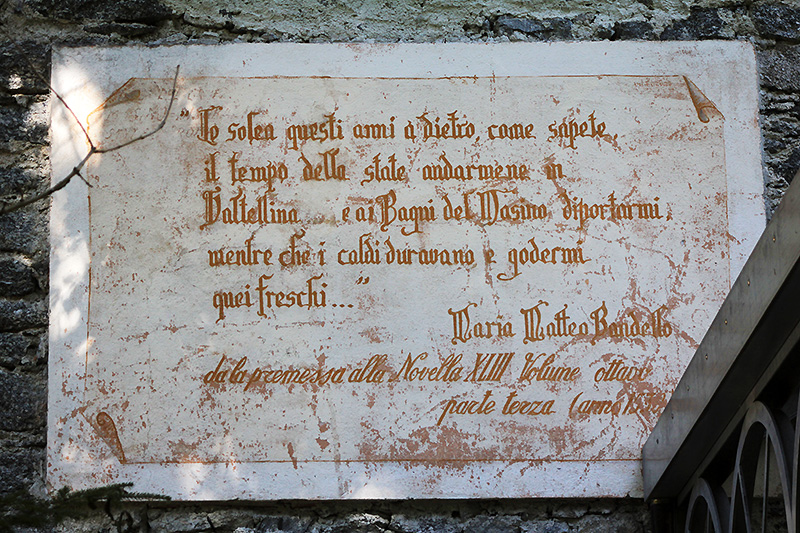 "Io solea questi anni a dietro, come sapete,
il tempo della state andarmene in
Valtellina e ai Bagni del Masino diportarmi,
mentre che i caldi duravano e godermi
quei freschi..."
Maria Matteo Bandello
da la premessa alla Novella XLIII Volume ottavo
parte terza (anno